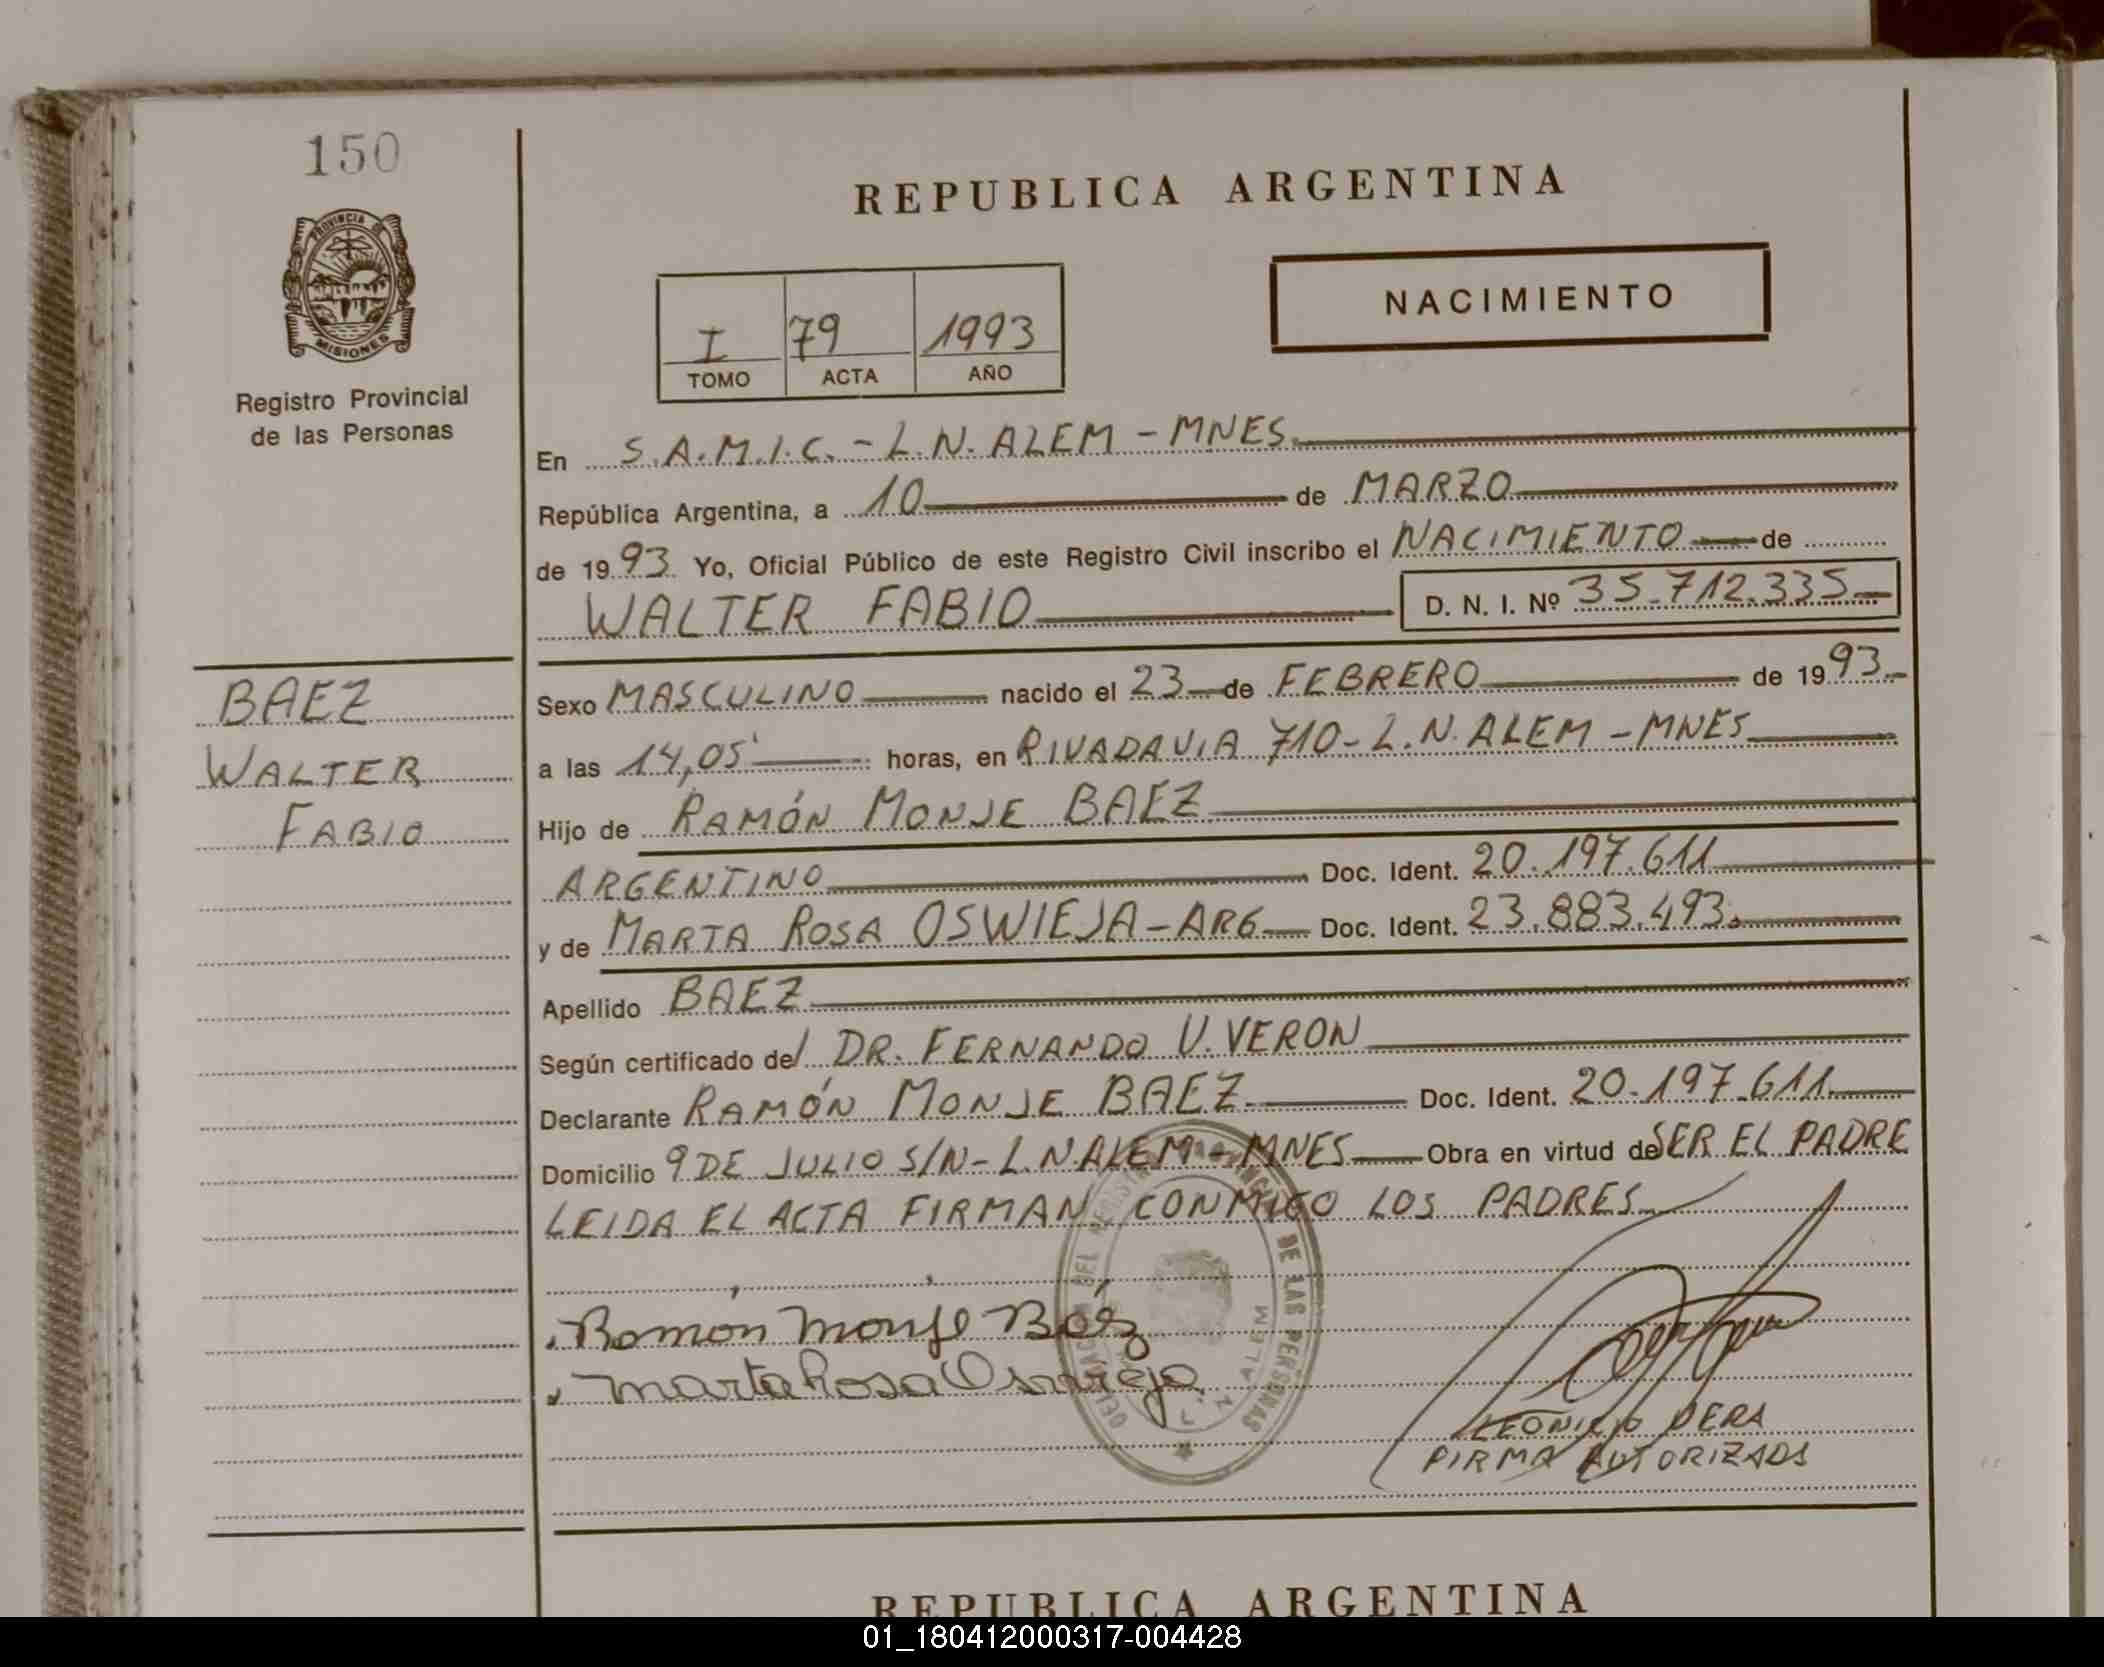 150
REPUBLICA ARGENTINA
PROVINCIA DE
MISIONES
Registro Provincial
de las Personas
NACIMIENTO
I 79 1993
TOMO ACTA AÑO
En S.A.M.I.C. - L.N. ALEM - MNES.
República Argentina, a 10 de MARZO
de 1993 Yo, Oficial Público de este Registro Civil inscribo el NACIMIENTO de
WALTER FABIO D. N. I. Nº 35.712.335
BAEZ
WALTER
FABIO
Sexo MASCULINO nacido el 23 de FEBRERO de 1993
a las 14,05' horas, en RIVADAVIA 710 - L.N. ALEM - MNES
Hijo de RAMÓN MONJE BAEZ
ARGENTINO Doc. Ident. 20.197.611
y de MARTA ROSA OSWIEJA - ARG Doc. Ident. 23.883.493.
Apellido BAEZ
Según certificado del DR. FERNANDO V. VERON
Declarante RAMÓN MONJE BAEZ Doc. Ident. 20.197.611
Domicilio 9 DE JULIO S/N - L.N ALEM - MNES Obra en virtud de SER EL PADRE
LEIDA EL ACTA FIRMAN CONMIGO LOS PADRES
Ramón Monje Báez
Marta Rosa Oswieja
DEL DE LAS PERSONAS
L. N. ALEM
VERA
FIRMA AUTORIZADA
REPUBLICA ARGENTINA
01_180412000317-004428